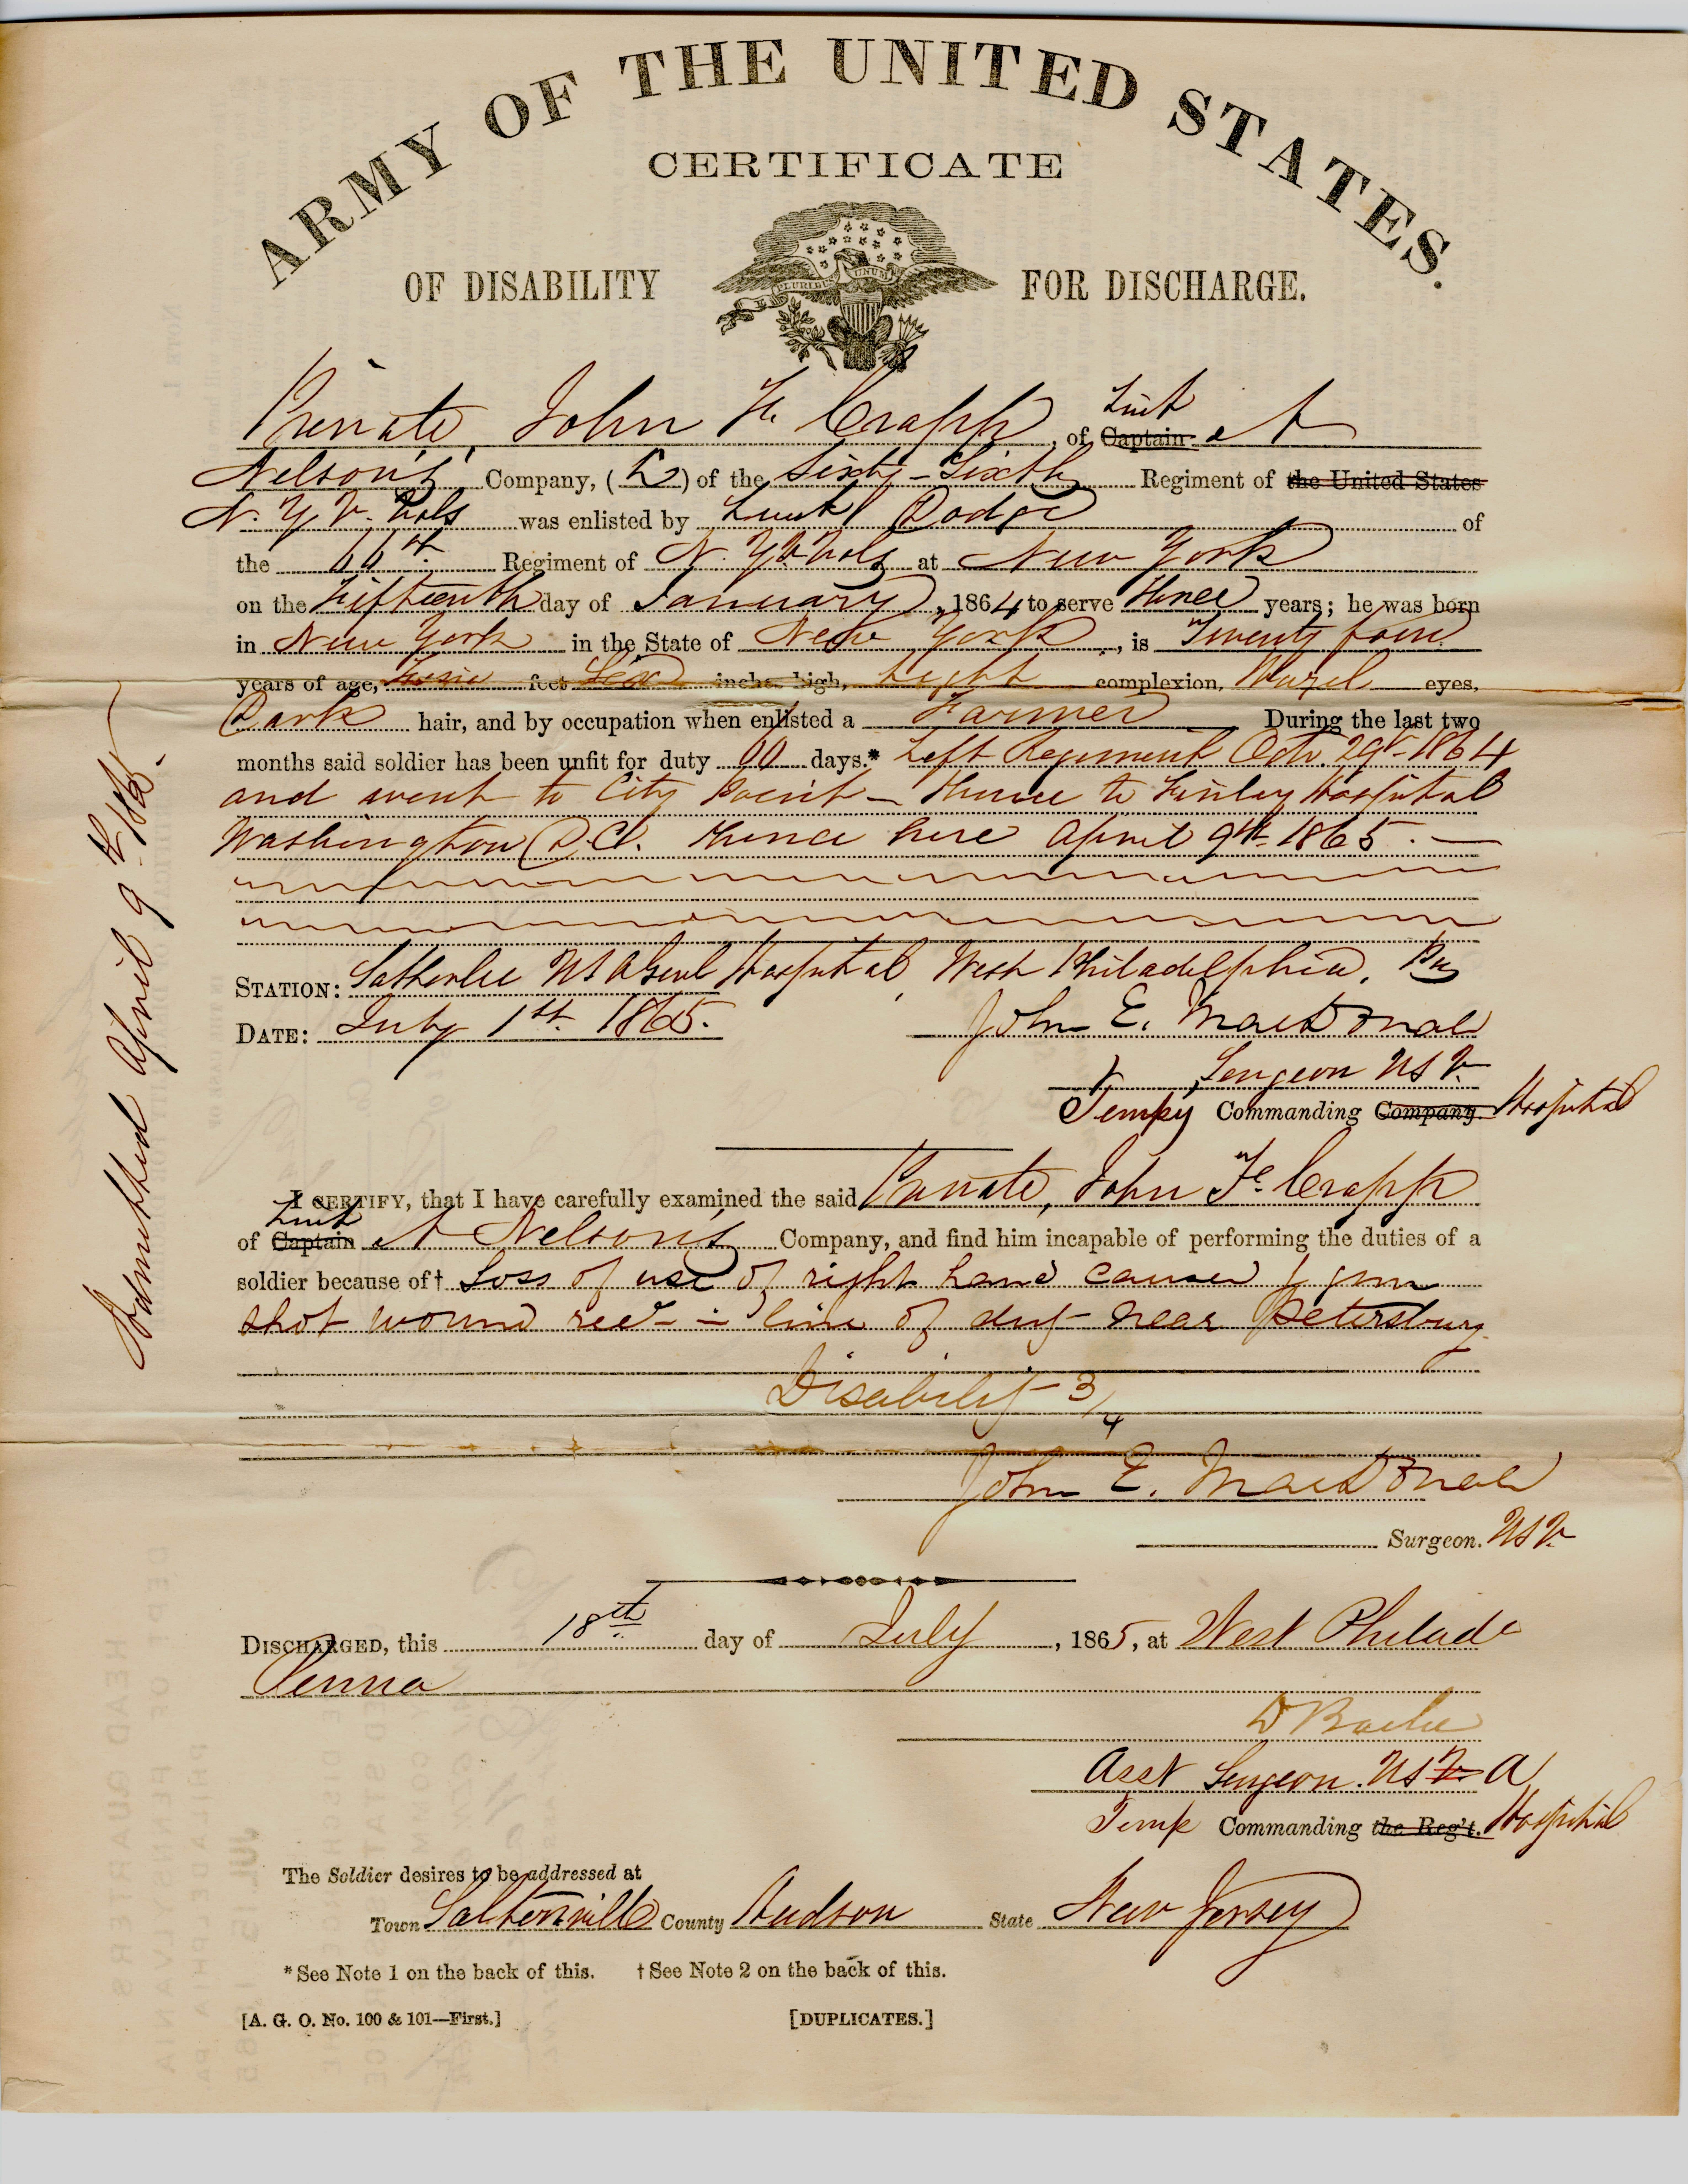 ARMY OF THE UNITED STATES.
CERTIFICATE
OF DISABILITY FOR DISCHARGE.
E PLURIBUS UNUM
Private, John F. Crapp, of Captain Lieut A
Nelson's Company, ( ) of the Sixty-Sixth Regiment of the United States
N. Y. V. Vols was enlisted by Lieut Dodge of
the Regiment of N. Y. V Vols at New York
on the Fifteenth day of January, 1864 to serve Three years; he was born
in New York in the State of New York, is Twenty four
years of age, Five feet Six inches high, Light complexion, Hazel eyes,
Dark hair, and by occupation when enlisted a Farmer During the last two
months said soldier has been unfit for duty 60 days.* Left Regiment Octr. 29th 1864
and went to City Point - thence to Finley Hospital
Washington D.C. thence here April 9th 1865. —
STATION: Satterlee U S A Genl Hospital, West Philadelphia, Pa
DATE: July 1st 1865. John E. MacDonald
Surgeon U S V.
Tempy Commanding Company. Hospital
I CERTIFY, that I have carefully examined the said Private, John F. Crapp
of Captain Lieut A Nelson's Company, and find him incapable of performing the duties of a
soldier because of† Loss of use of right hand caused by gun
shot wound recd in line of duty near Petersburg
Disability 3/4
John E. MacDonald
Surgeon. U S V.
DISCHARGED, this 18th day of July, 1865, at West Philada
Penna
D Bache
Asst Surgeon. U S V A
Temp Commanding the Reg't. Hospital
The Soldier desires to be addressed at
Town Saltersville County Hudson State New Jersey
*See Note 1 on the back of this. †See Note 2 on the back of this.
[A. G. O. No. 100 & 101—First.] [DUPLICATES.]
Admitted April 9th 1865.